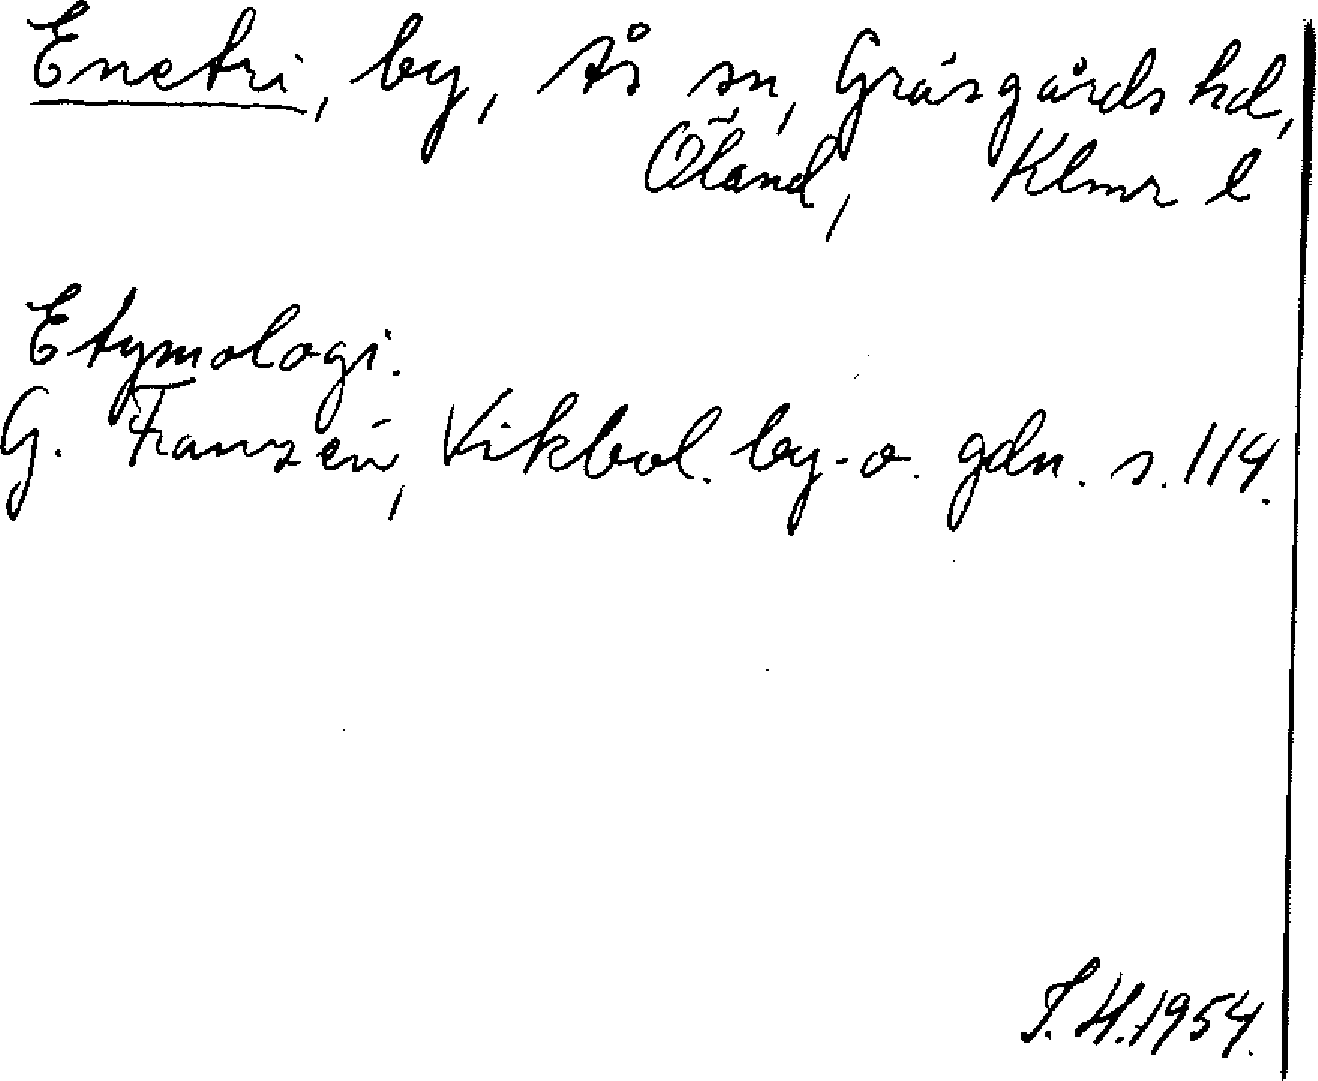 Enetri, by, Ås sn, Gräsgårds hd,
Öland, Klmr l
Etymologi.
G. Franzén, Vikbol. by- o. gdn. s. 114.
I. H. 1954.